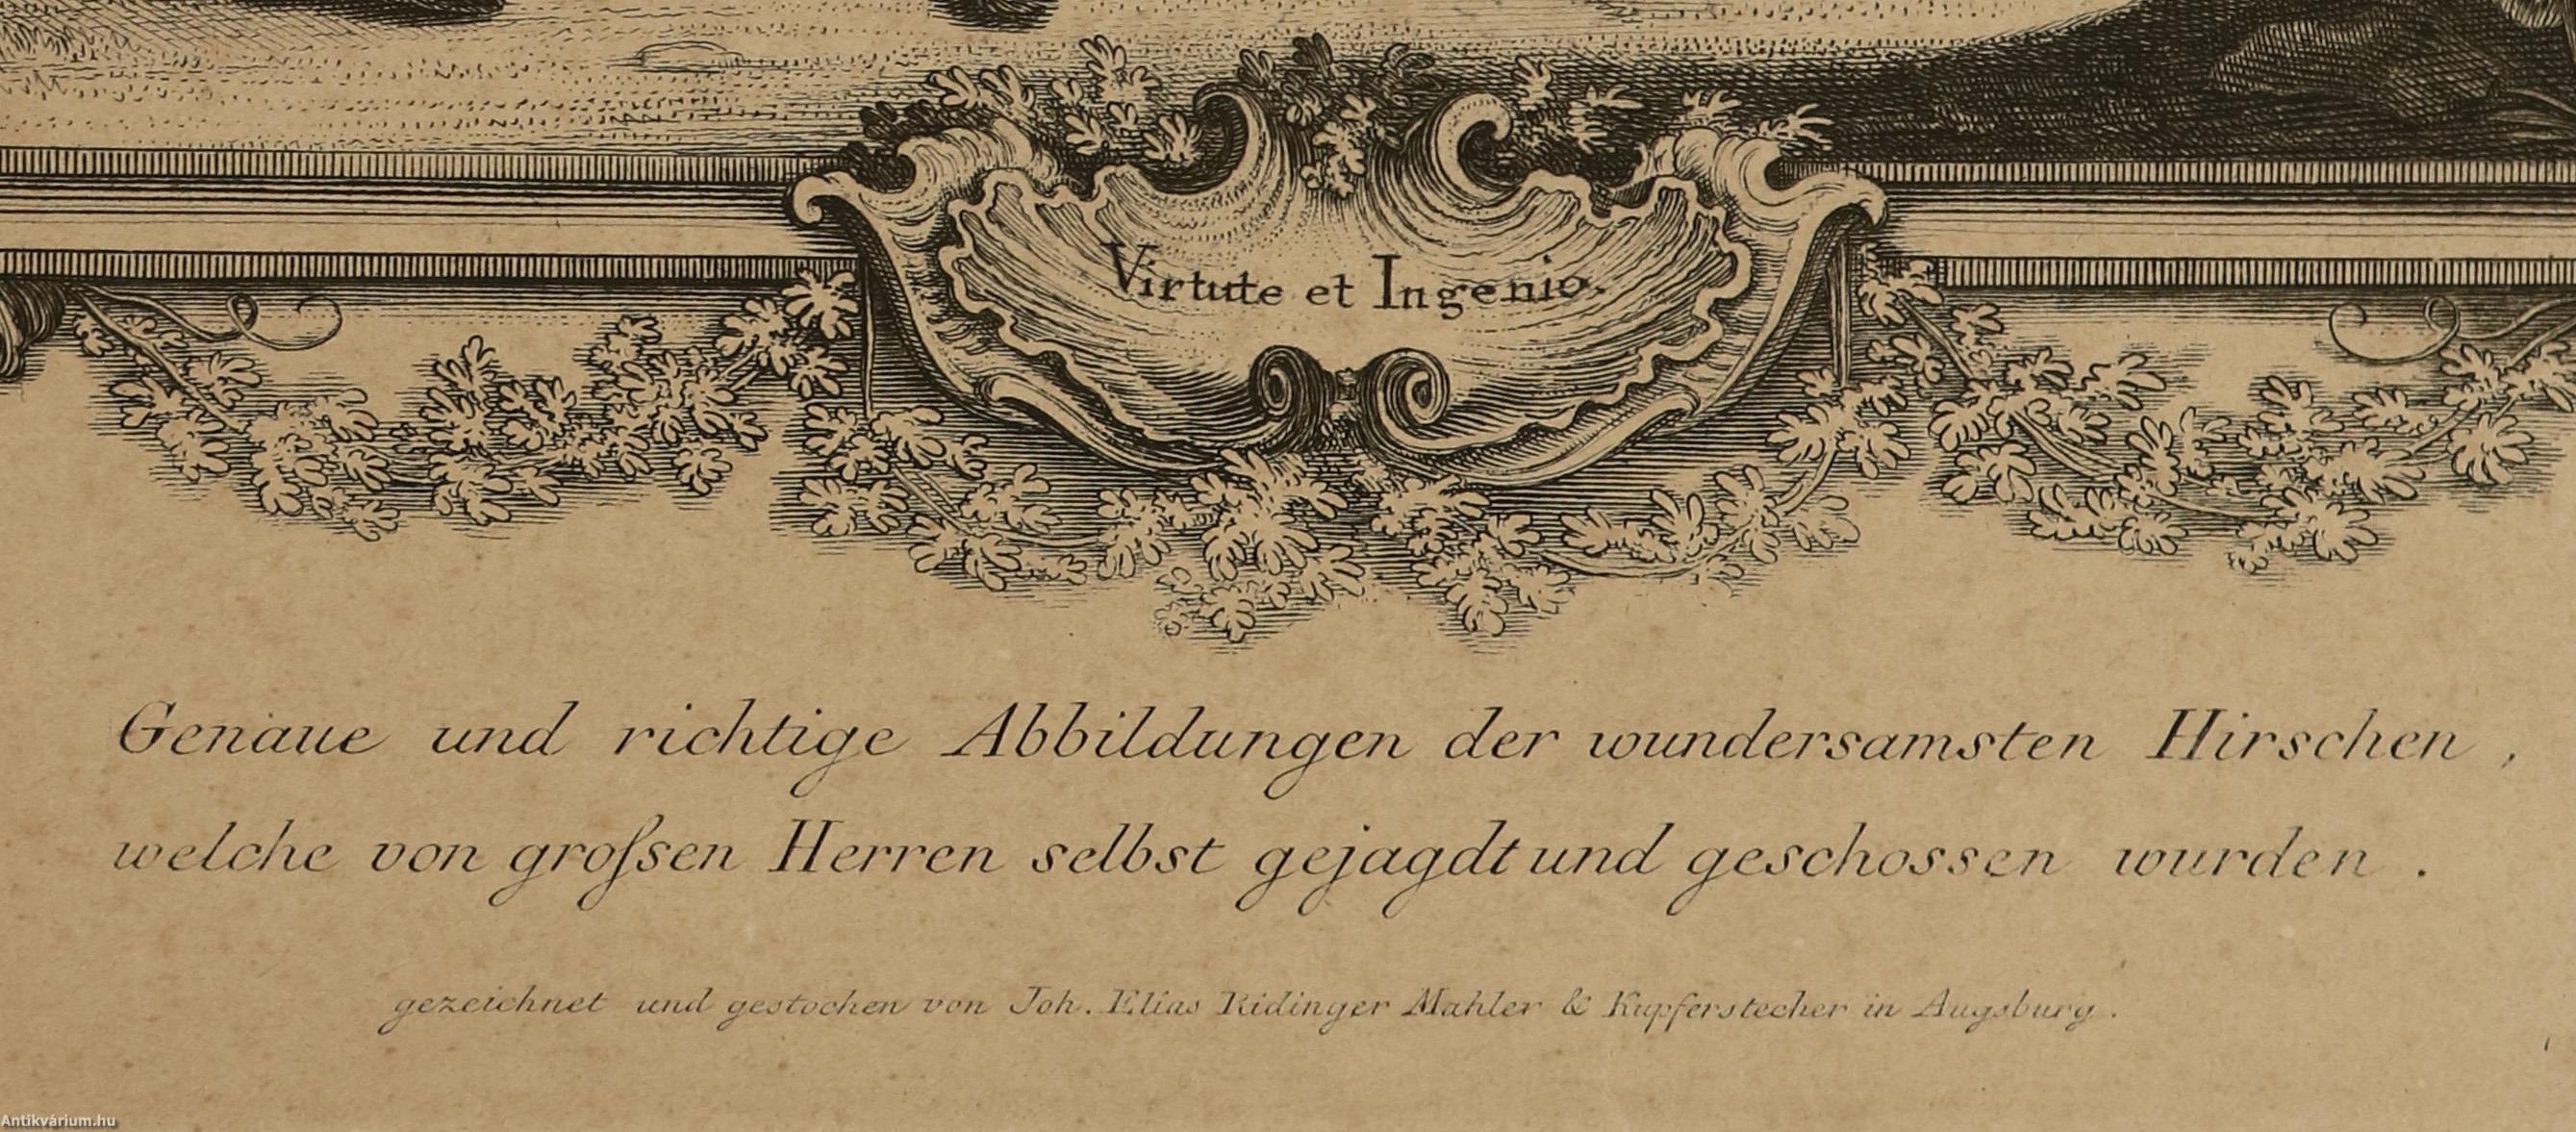 Virtute et Ingenio.
Genaue und richtige Abbildungen der wundersamsten Hirschen,
welche von groſsen Herren selbst gejagdt und geschossen wurden.
gezeichnet und gestochen von Joh. Elias Ridinger Mahler & Kupferstecher in Augsburg.
Antikvárium.hu